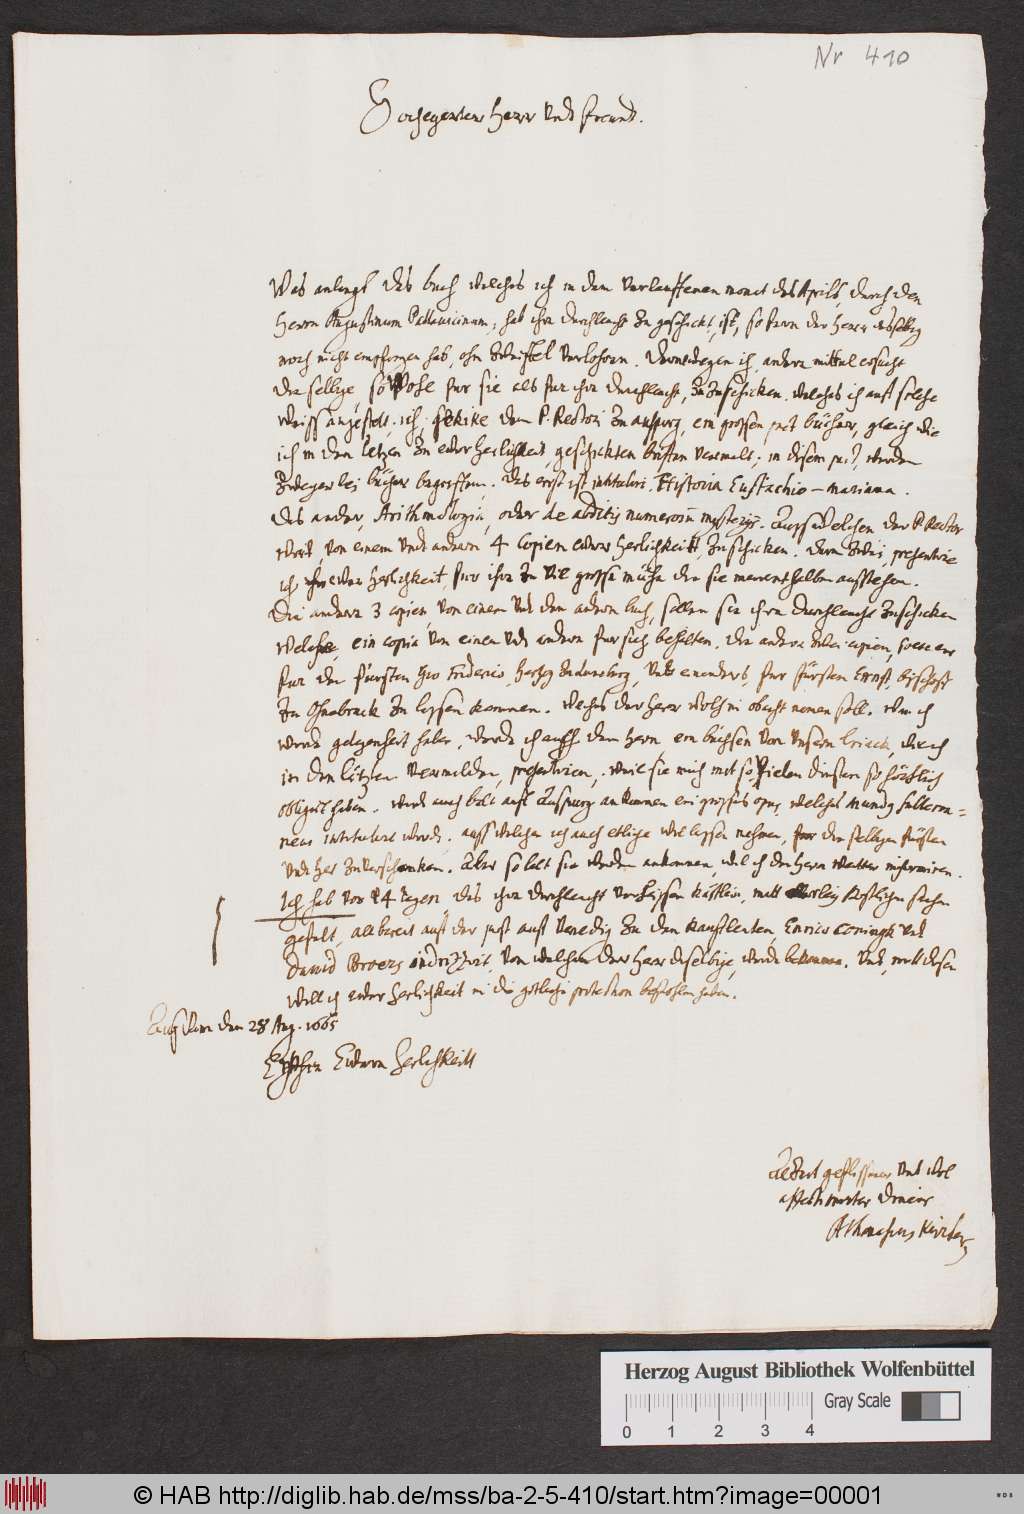 Nr 410
Hochgeerter Herr Undt freundt.
Was anlangt das buch welches ich in dem Verlauffenen monat des Aprils, durch den
Herrn Augustinum Pallavicinum, hab ihro durchlaucht zu geschickt, ist, so fern der Herr
noch nicht empfangen hab, ohn zweiffel verlohren. derowegen ich andere mittel ersucht
die selbige, so Wohl fur sie als fur ihro durchlaucht, zuzuschicken. welches ich auf solche
Weiss angestelt. ich schike dem P. Rectori zu auspurg, ein grossen bücher, gleich wie
ich in dem letzen zu ewer herlichkeit geschickten brieffen vermelt; in disem werden
zweyerlei bücher begriffen. das erst ist intituliert. Historia Eustachio-mariana.
das ander, Arithmologia, oder de abditis numerorum mysterijs. Auss welchen der P. Rector
wird von einem Undt andern 4 Copien ewer herlichkeitt, zuschicken. deren zwei, presentire
ich ewer herlichkeit, fur ihre zu vil grosse mühe die sie meinenthalben ausstehen.
Die andere 3 copien, von einem Undt dem andern buch, sollen sie ihren durchlaucht zuschicken
welche, ein copia, von einem Undt andern fur sich behalten. die andere zwei copien,
fur den fürsten Gio Friderico, Hertzog Undt fur fürsten Ernst, bischoff
zu Osnabruck zu lassen kommen. welches der herr wohl in obacht nemen soll. wan ich
werde gelegenheit haben, werde ich auch dem herrn, ein büchsen von unserm triack, wie ich
in den letzten vermelden, presentiren, weil sie mich mit so Vielen diensten so höchlich
obligiert haben. wird auch balt auf Auspurg ankommen ein grosses opus, welches Mundus subterra=
neus intituliert wird. auss welchen ich auch etliche will lassen nehmen, fur die selbige fürsten
Undt her zuverschenken. Aber so balt sie werden ankommen, will ich den herrn weitter informiren.
Ich hab vor 14 tagen das ihro durchlaucht verheissen kästlein, mitt allerley kostlichen sachen
gefült, allbereit auf der post auf Venedig zu den kaufleuten, Enrico Coningk Undt
David Broers indrizziret, von welchen der Herr dieselbige, werde bekommen. Undt, mitt diesen
will ich ewer herlichkeit in die gotliche protection befohlen haben.
den 28 Aug. 1665
Ewern herlichkeitt
geflissener Undt
affectionirter diener
Athanasius Kircher
Herzog August Bibliothek Wolfenbüttel
Gray Scale
0 1 2 3 4
© HAB http://diglib.hab.de/mss/ba-2-5-410/start.htm?image=00001